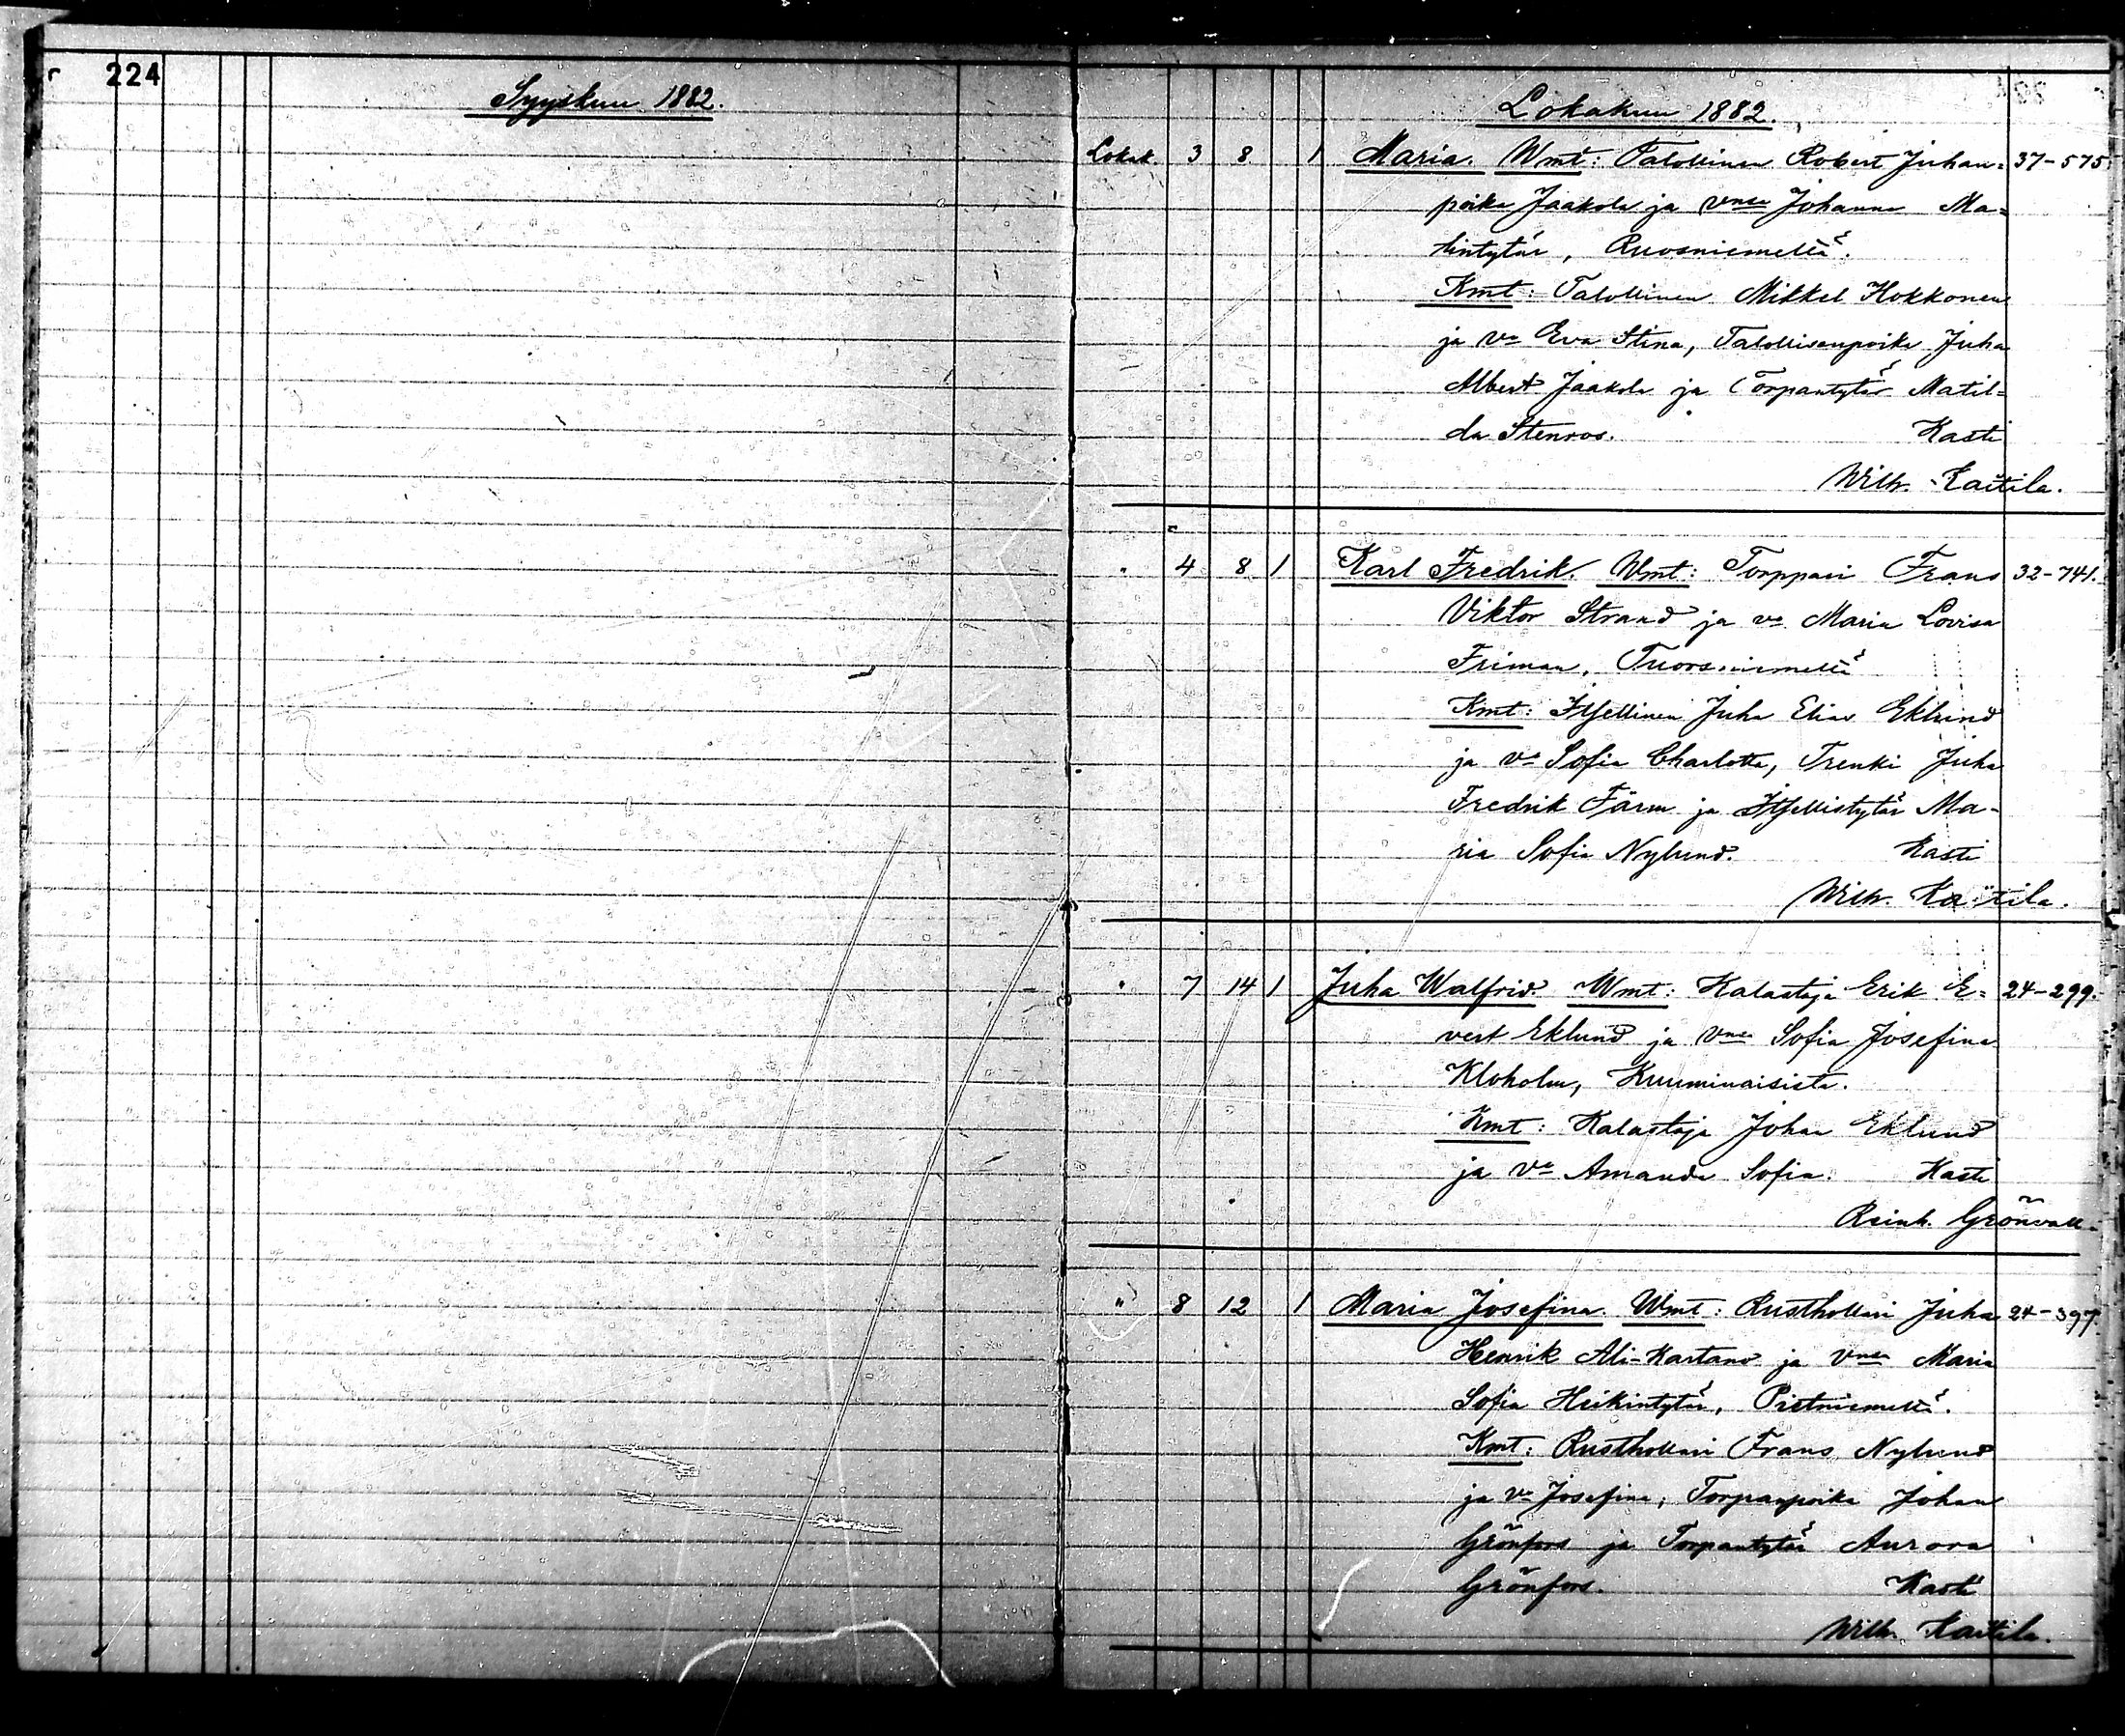 224
Syyskuu 1882.
Lokakuu 1882.
Lokak. 3 8 1 Maria. Wmt: Talollinen Robert Juhan= 37-575.
poika Jaakola ja vmsa Johanna Ma=
tintytär, Ruosniemeltä.
Kmt: Talollinen Mikkel Kokkonen
ja va Eva Stina, Talollisenpoika Juha
Albert Jaakola ja Torpantytär Matil=
da Stenroos. Kasti
Wilh. Kaitila.
" 4 8 1 Karl Fredrik. Wmt: Torppari Frans 32-741.
Viktor Strand ja va Maria Lovisa
Friman, Tuorsniemeltä
Kmt: Itsellinen Juha Elias Eklund
ja va Sofia Charlotta, Trenki Juha
Fredrik Färm ja Itsellistytär Ma-
ria Sofia Nylund. Kasti
Wilh. Kaitila.
" 7 14 1 Juha Walfrid. Wmt: Kalastaja Erik E= 24-299.
vert Eklund ja vmsa Sofia Josefina
Kloholm, Kuuminaisista.
Kmt: Kalastaja Johan Eklund
ja va Amanda Sofia. Kasti
Reinh. Grönvall.
" 8 12 1 Maria Josefina. Wmt: Rusthollari Juha 24-397.
Henrik Ali-Kartano ja vmsa Maria
Sofia Heikintytär, Pietniemeltä.
Kmt: Rusthollari Frans Nylund
ja va Josefina, Torpanpoika Johan
Grönfors ja Torpantytär Aurora
Grönfors. Kasti
Wilh. Kaitila.